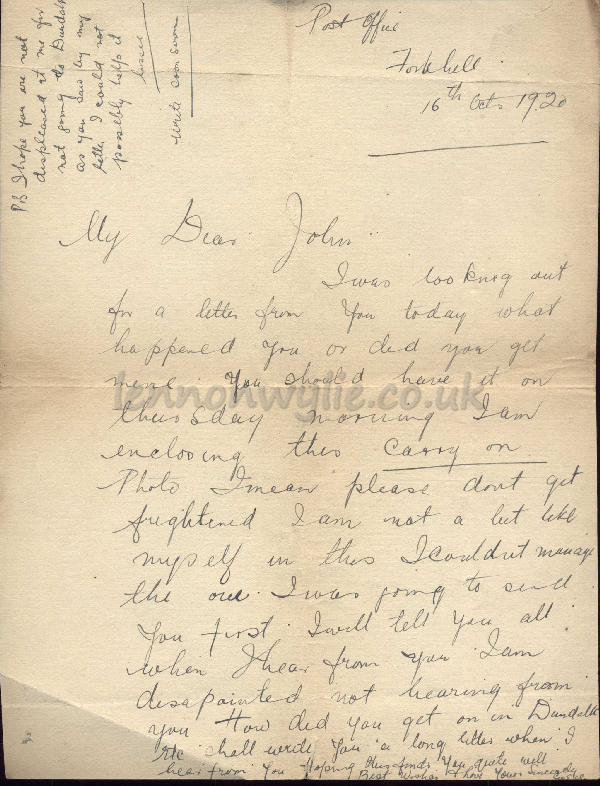 Post Office
Forkhill
16th Oct 1920
My Dear John
I was looking out
for a letter from You today what
happened You or did you get
mine. You should have it on
thursday morning I am
enclosing this Carry on
Photo I mean please dont get
frightened I am not a bit like
myself in this I couldnt manage
the one I was going to send
You first. I will tell you all
when I hear from you I am
disapointed not hearing from
you How did you get on in Dundalk
shall write you a long letter when I
hear from You Hoping this finds You quite well
Best Wishes & love Yours Sincerely
PS I hope you are not
displeased at me for
not going to Dundalk
as you saw by my
letter I could not
possibly help it
write soon
lennonwylie.co.uk